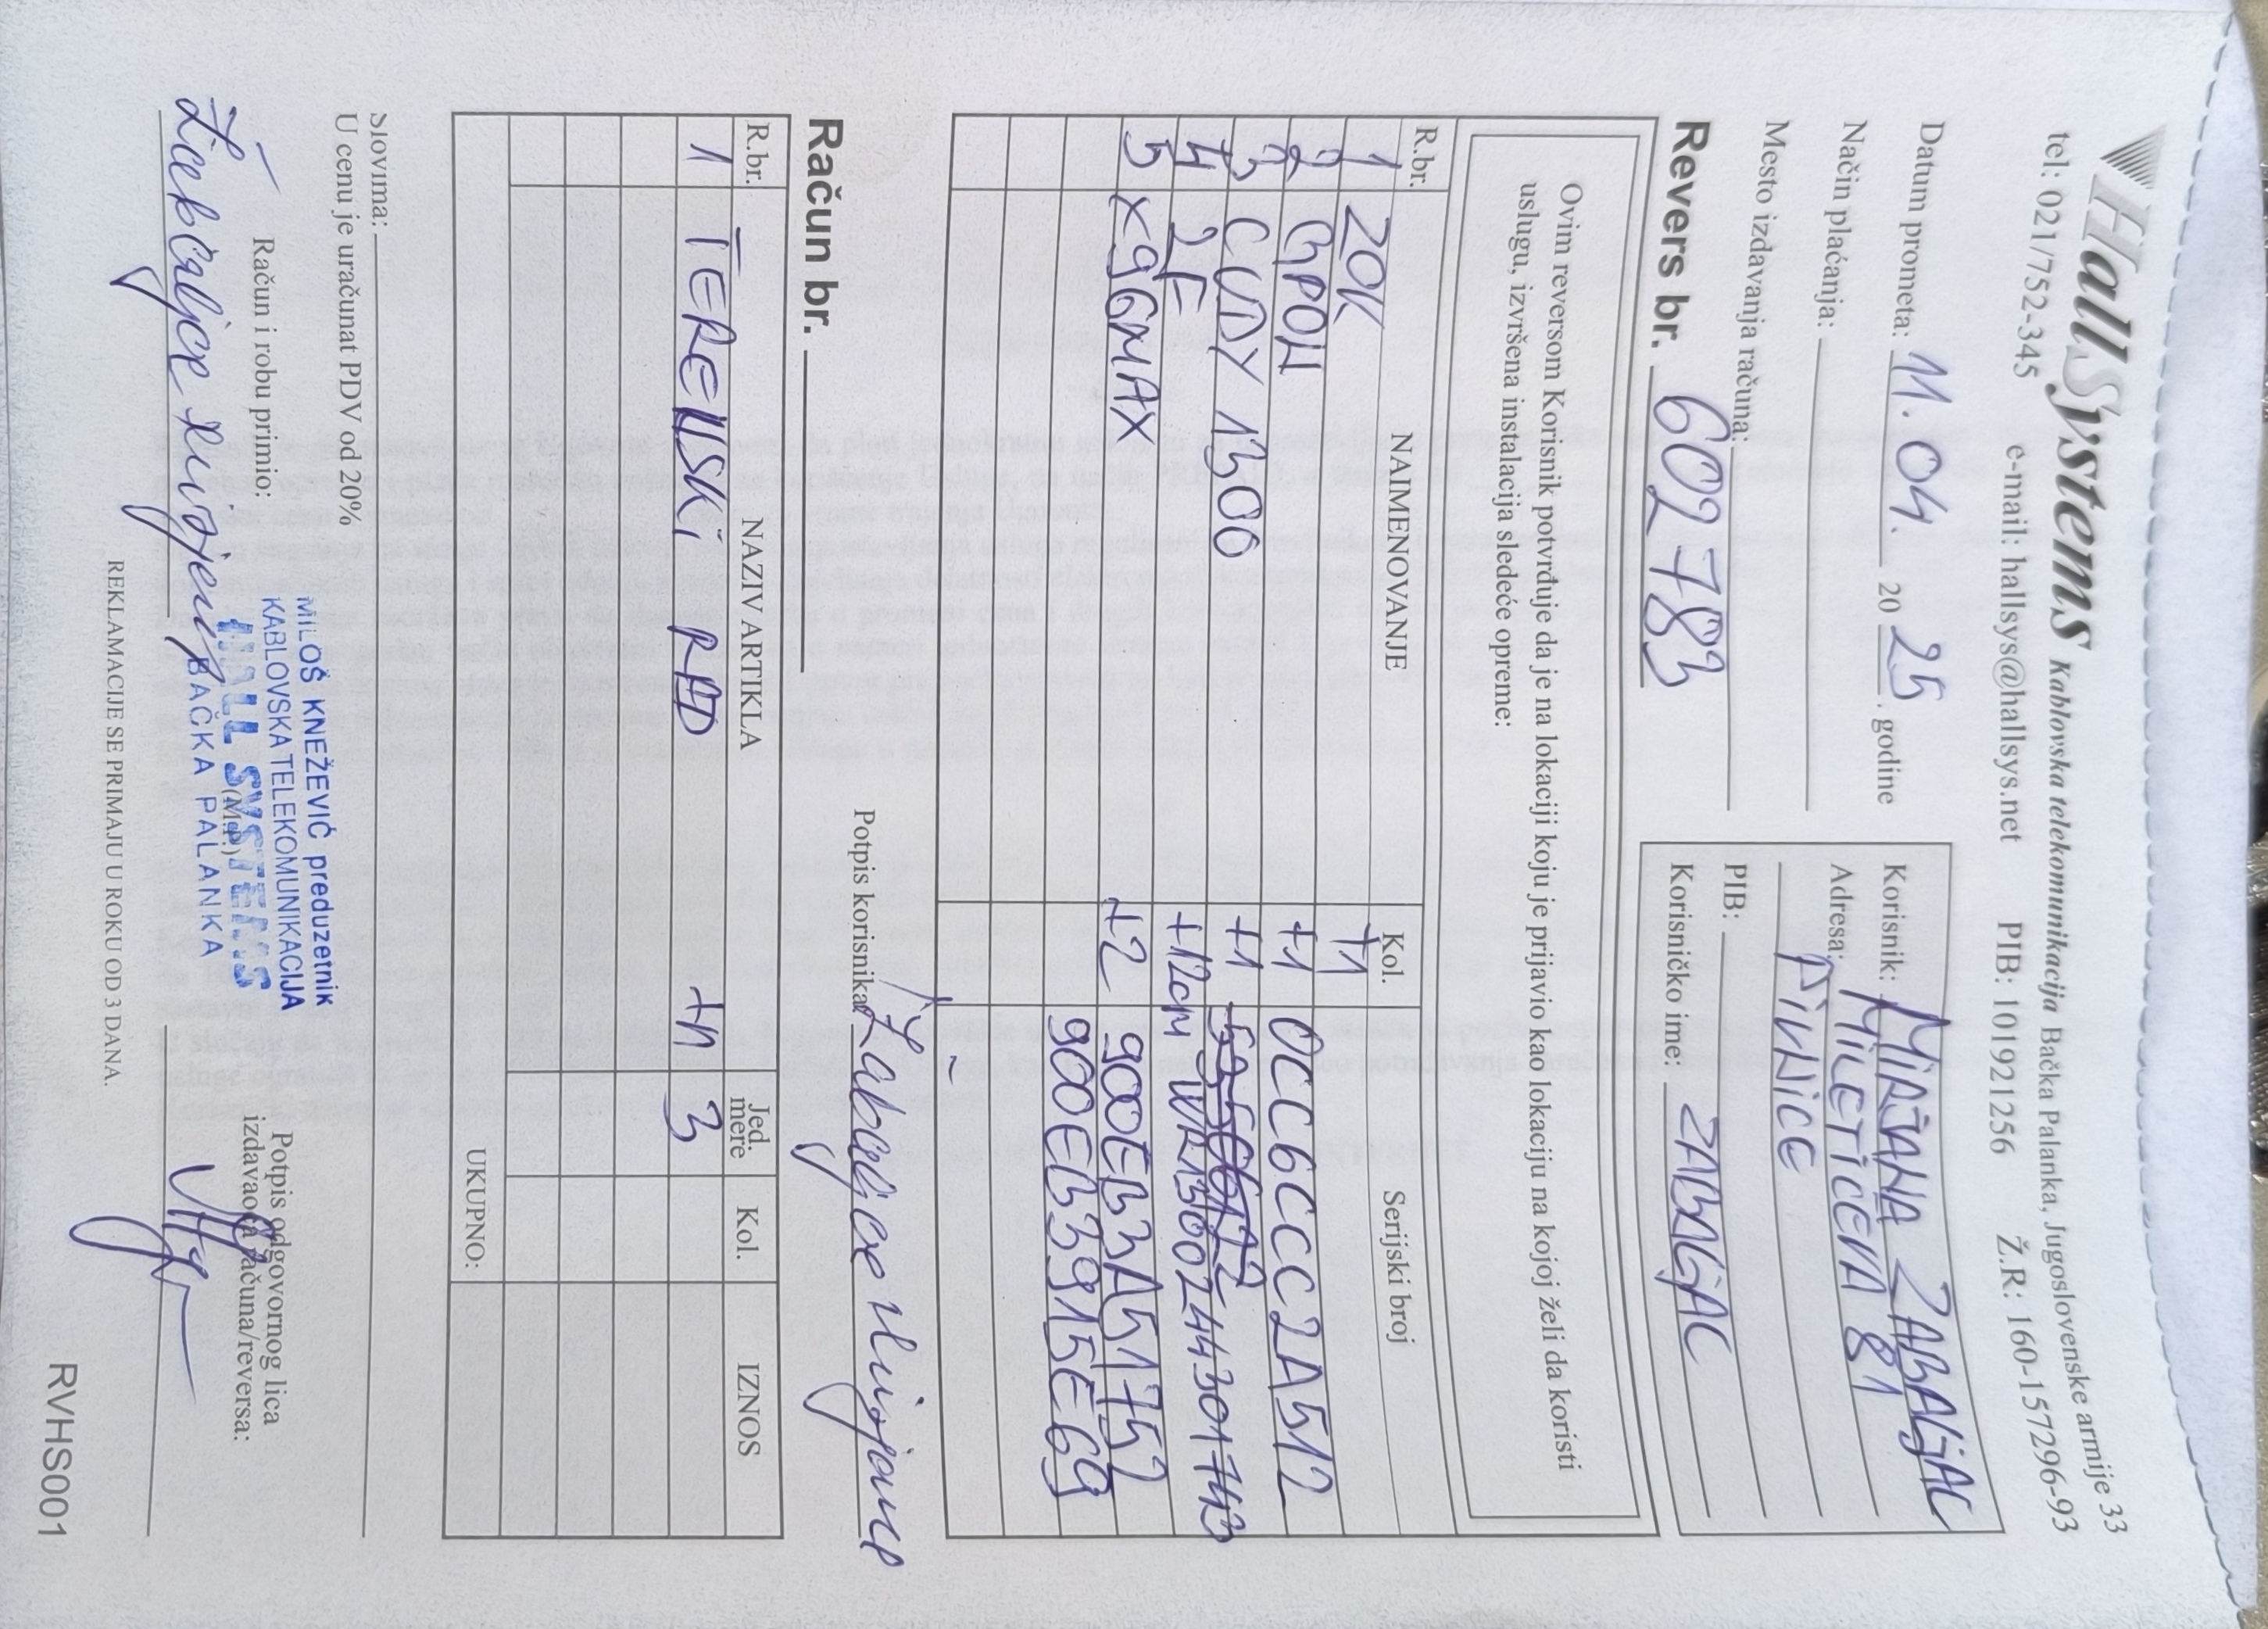 HallSystems Kablovska telekomunikacija Bačka Palanka, Jugoslovenske armije 33
tel: 021/752-345 e-mail: hallsys@hallsys.net PIB: 101921256 Ž.R: 160-157296-93
Datum prometa: 11.04. 20 25. godine
Način plaćanja:
Mesto izdavanja računa:
Revers br. 602783
Korisnik: MIRJANA ZABALJAC
Adresa: MILETIĆEVA 81
PIVNICE
PIB:
Korisničko ime: ZABALJAC
Ovim reversom Korisnik potvrđuje da je na lokaciji koju je prijavio kao lokaciju na kojoj želi da koristi
uslugu, izvršena instalacija sledeće opreme:
R.br. NAIMENOVANJE Kol. Serijski broj
1 ZOK +1
2 GPON +1 0CC6CCC2A512
3 CUDY 1300 +1
4 2F +12cm WR13002443017143
5 X96MAX +2 900EB3A51752
900EB3915E69
Potpis korisnika
Račun br.
R.br. NAZIV ARTIKLA Jed. mere Kol. IZNOS
1 TERENSKI RAD +h 3
UKUPNO:
Slovima:
U cenu je uračunat PDV od 20%
Račun i robu primio:
MILOŠ KNEŽEVIĆ preduzetnik
KABLOVSKA TELEKOMUNIKACIJA
HALL SYSTEMS
(M.P.)
BAČKA PALANKA
Potpis odgovornog lica
izdavaoca računa/reversa:
REKLAMACIJE SE PRIMAJU U ROKU OD 3 DANA.
RVHS001